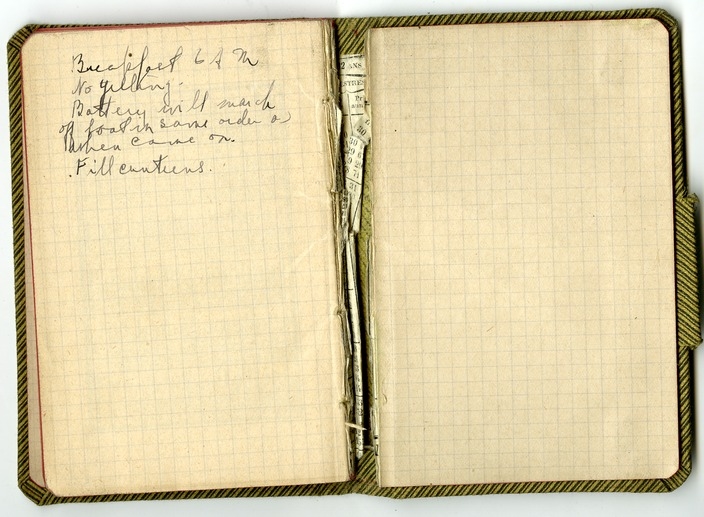 Breakfast 6 A M
No yelling.
Battery will march
of foot in same order as
when came on.
Fill canteens.
2 ANS
30